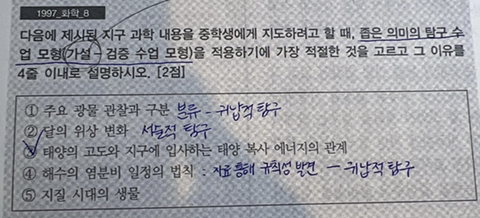 1997_화학_8
다음에 제시된 지구 과학 내용을 중학생에게 지도하려고 할 때, 좁은 의미의 탐구 수
업 모형(가설 - 검증 수업 모형)을 적용하기에 가장 적절한 것을 고르고 그 이유를
4줄 이내로 설명하시오. [2점]
① 주요 광물 관찰과 구분 분류 - 귀납적 탐구
② 달의 위상 변화 서술적 탐구
③ 태양의 고도와 지구에 입사하는 태양 복사 에너지의 관계
④ 해수의 염분비 일정의 법칙 : 자료 통해 규칙성 발견 - 귀납적 탐구
⑤ 지질 시대의 생물